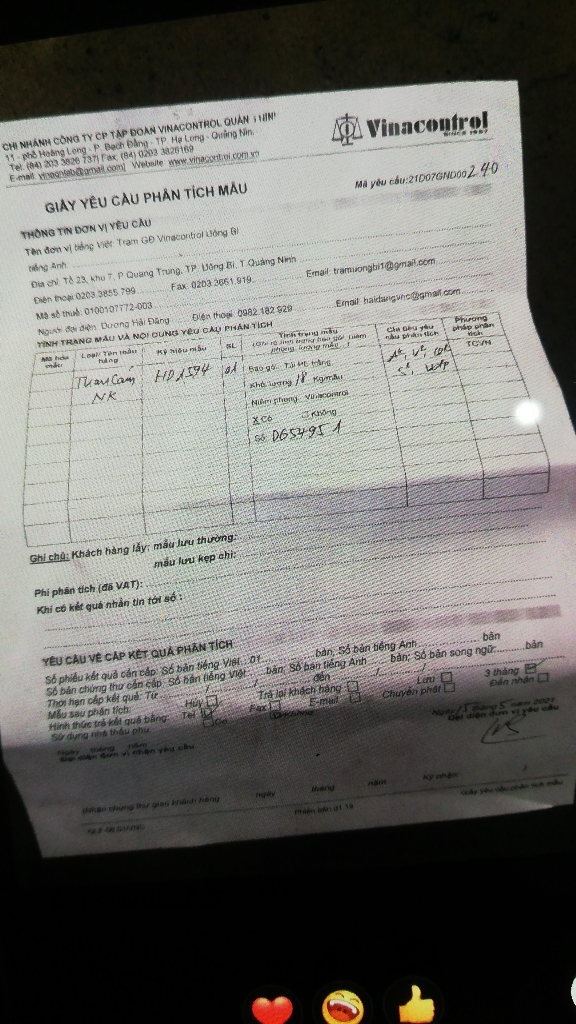 CHI NHÁNH CÔNG TY CP TẬP ĐOÀN VINACONTROL QUẢN
11 - phố Hoàng Long - P. Bạch Đằng - TP. Hạ Long - Quảng Nin.
Tel: (84) 203 3826 737| Fax: (84) 0203 3826169
E-mail: vnaqnlab@gmail.com| Website: www.vinacontrol.com.vn
Vinacontrol
SINCE 1957
GIẤY YÊU CẦU PHÂN TÍCH MẪU
Mã yêu cầu:21D07GND00240
THÔNG TIN ĐƠN VỊ YÊU CẦU
Tên đơn vị tiếng Việt: Trạm GĐ Vinacontrol Uông Bí
tiếng Anh:
Địa chỉ: Tổ 23, khu 7, P.Quang Trung, TP Uông Bí, T.Quảng Ninh
Điện thoại:0203.3855.799 Fax: 0203.3661.919 Email: tramuongbi1@gmail.com
Mã số thuế: 0100107772-003
Người đại diện: Dương Hải Đăng Điện thoại: 0982.182.929 Email: haidangvnc@gmail.com
TÌNH TRẠNG MẪU VÀ NỘI DUNG YÊU CẦU PHÂN TÍCH
Mã hóa mẫu Loại/ Tên mẫu hàng Ký hiệu mẫu SL Tình trạng mẫu Chỉ tiêu yêu cầu phân tích Phương pháp phân tích
Than Cám NK HD1594 01 Bao gói: Túi PE trắng TCVN
Khối lượng: 18 Kg/mẫu
Niêm phong: Vinacontrol
X Có ☐ Không
Số: D654951
Ghi chú: Khách hàng lấy: mẫu lưu thường:
mẫu lưu kẹp chì:
Phí phân tích (đã VAT):
Khi có kết quả nhắn tin tới số :
YÊU CẦU VỀ CẤP KẾT QUẢ PHÂN TÍCH
Số phiếu kết quả cần cấp: Số bản tiếng Việt...01 bản; Số bản tiếng Anh bản
Số bản chứng thư cần cấp: Số bản tiếng Việt bản; Số bản tiếng Anh bản; Số bản song ngữ: bản
Thời hạn cấp kết quả: Từ / / đến / /
Mẫu sau phân tích: Hủy ☐ Trả lại khách hàng ☐ Lưu ☐ 3 tháng ☑
Hình thức trả kết quả bằng: Tel ☑ Fax ☐ E-mail ☐ Chuyển phát ☐ Đến nhận ☐
Sử dụng nhà thầu phụ: Có Không
Ngày 15 tháng 5 năm 2021
Ngày tháng năm Đại diện đơn vị yêu cầu
Đại diện đơn vị nhận yêu cầu
ngày tháng năm Ký nhận:
Phiên bản 01.19 Giấy yêu cầu phân tích mẫu